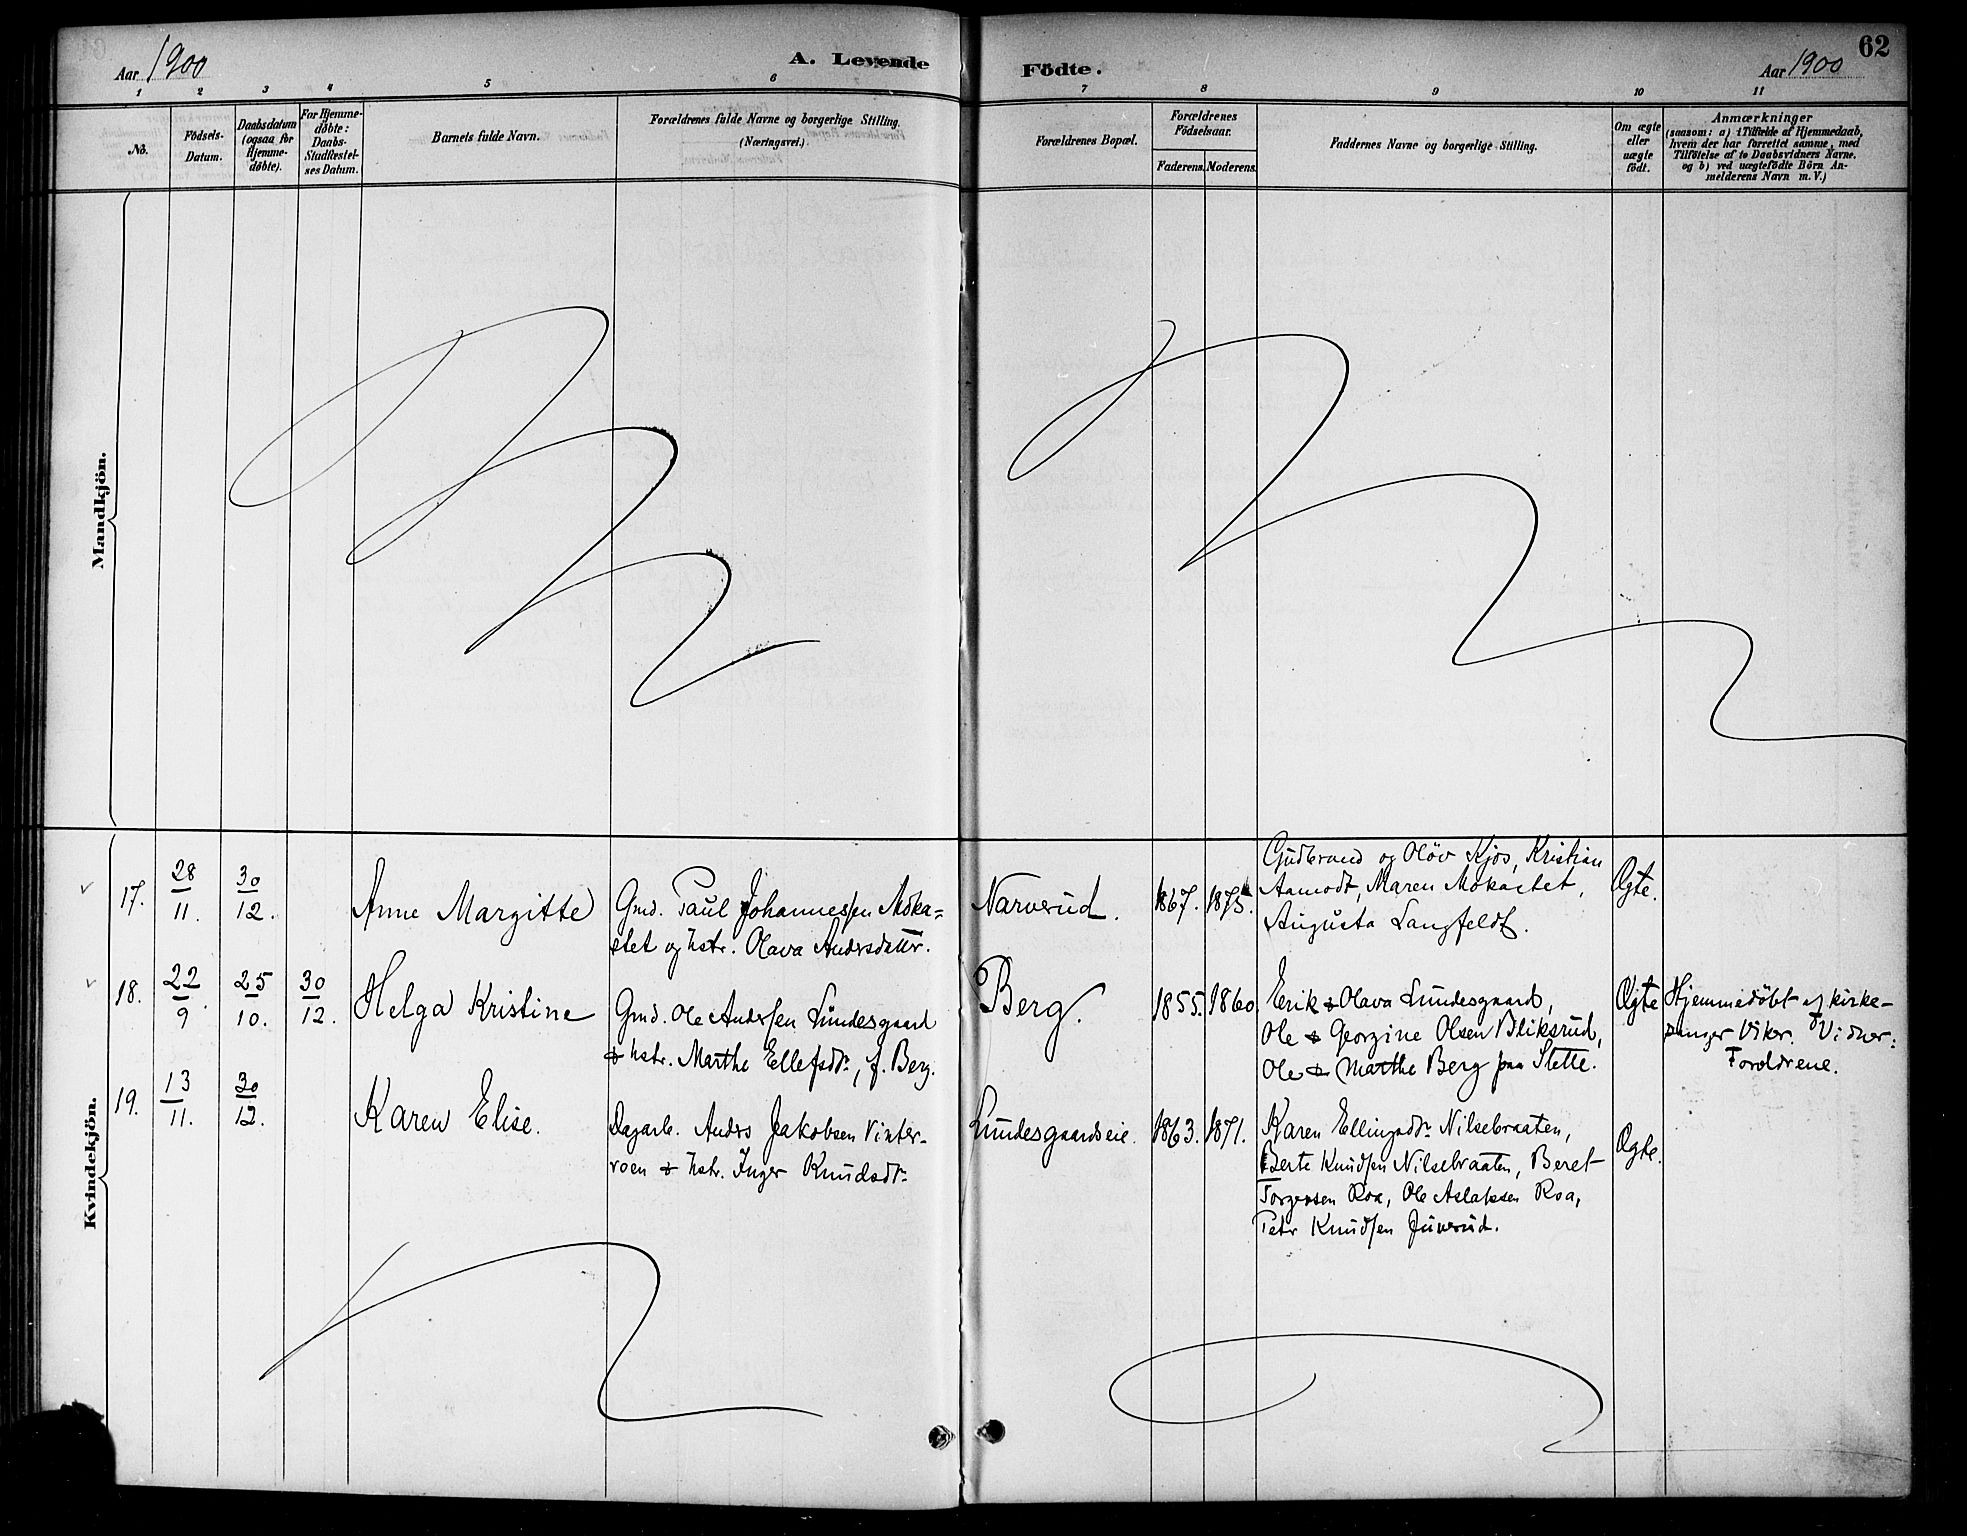 Aar 1900
A. Levende
Fødte.
Aar 1900
62
1 2 3 4 5 6 7 8 9 10 11
No.
Födsels-
Datum.
Daabsdatum
(ogsaa for
Hjemme-
døbte).
For Hjemme-
døbte:
Daabs-
Stadfæstel-
ses Datum.
Barnets fulde Navn.
Forældrenes fulde Navne og borgerlige Stilling.
(Næringsvei.)
Forældrenes Bopæl.
Forældrenes
Födselsaar.
Faderens. Moderens.
Faddernes Navne og borgerlige Stilling.
Om ægte
eller
uægte
født.
Anmærkninger
(saasom: a) i Tilfælde af Hjemmedaab,
hvem der har forrettet samme, med
Tilføielse af to Daabsvidners Navne.
og b) ved uægtefödte Börn An-
melderens Navn m. V.)
Mandkjön.
Kvindekjön.
17.
28
11.
30
12.
Anne Margitte
Gmd. Paul Johannessen Moka=
stet og hstr. Olava Andersdattr.
Narverud.
1867. 1875.
Gudbrand og Olöv Kjos, Kristian
Aamodt, Maren Mokastet,
Augusta Langfeldt.
Ægte.
18.
22
9
25
10.
30
12.
Helga Kristine
Gmd. Ole Andersen Lundesgaard
& hstr. Marthe Ellefsdr., f. Berg.
Berg.
1855. 1860
Erik & Olava Lundesgaard,
Ole & Georgine Olsen Bliksrud,
Ole & Marthe Berg paa Slette.
Ægte
Hjemmedöbt af kirke-
sanger Viker. Vidner:
Foroldrene.
19.
13
11.
30
12.
Karen Elise.
Dagarb. Anders Jakobsen Vinter-
roen & hstr. Inger Knudsdr.
Lundesgaardseie.
1863. 1871.
Karen Ellingsdr. Nilsebraaten,
Berte Knudsen Nilsebraaten, Beret
Torgersen Roa, Ole Aslaksen Roa,
Petr Knudsen Juverud.
Ægte.